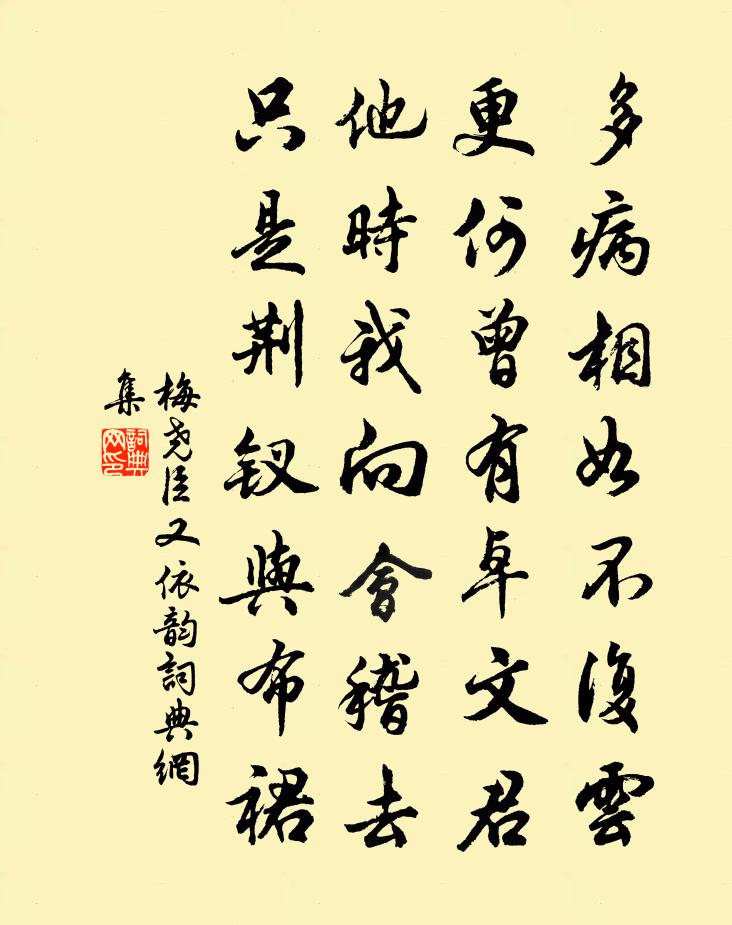 多病相如不復雲
更何曾有卓文君
他時我向會稽去
只是荆釵與布裙
梅尧臣又依韵詞典網
集
詞典网印